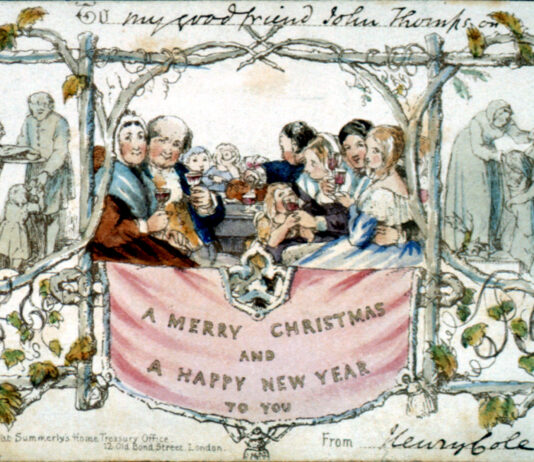 To my good friend John Thompson
A MERRY CHRISTMAS
AND
A HAPPY NEW YEAR
TO YOU
at Summerly's Home Treasury Office,
12 Old Bond Street, London.
From Henry Cole